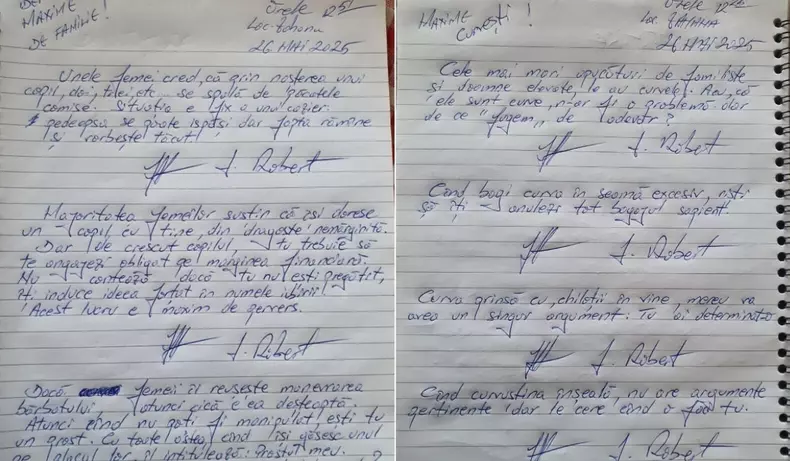 DEM
MAXIME
DE FAMILIE!
Orele 12 51
Loc. Tohanu
26 MAI 2025
Unele femei cred, că prin nașterea unui
copil, doi, trei, etc... se spală de păcatele
comise. Situația e fix a unui cazier:
pedeapsa se poate ispăși dar fapta rămâne
și vorbește tăcut!
J. Robert
Majoritatea femeilor susțin că își doresc
un copil cu tine, din dragoste nemărginită.
Dar de crescut copilul, tu trebuie să
te angajezi obligat pe marginea financiară.
Nu contează dacă tu nu ești pregătit,
îți induce ideea forțat în numele iubirii
Acest lucru e maxim de pervers.
J. Robert
Dacă femeii îi reușește manevrarea
bărbatului atunci cică e ea deșteaptă.
Atunci când nu poți fi manipulat, ești tu
un prost. Cu toate astea, când își găsesc unul
pe placul lor, îl intitulează: Prostul meu.
MAXIME
Curvești!
Orele
Loc.
26 MAI 2025
Cele mai mari apucături de familiste
și doamne elevate, le au curvele! Așa, că
ele sunt curve, n-ar fi o problemă dar
de ce "fugem" de adevăr?
J. Robert
Când bagi curva în seamă excesiv, riști
să îți anulezi tot bagajul sapient.
J. Robert
Curva prinsă cu chiloții în vine, mereu va
avea un singur argument: Tu ai determinat-o
J. Robert
Când curvuștina înșeală, nu are argumente
pertinente dar le cere când o faci tu.
J. Robert